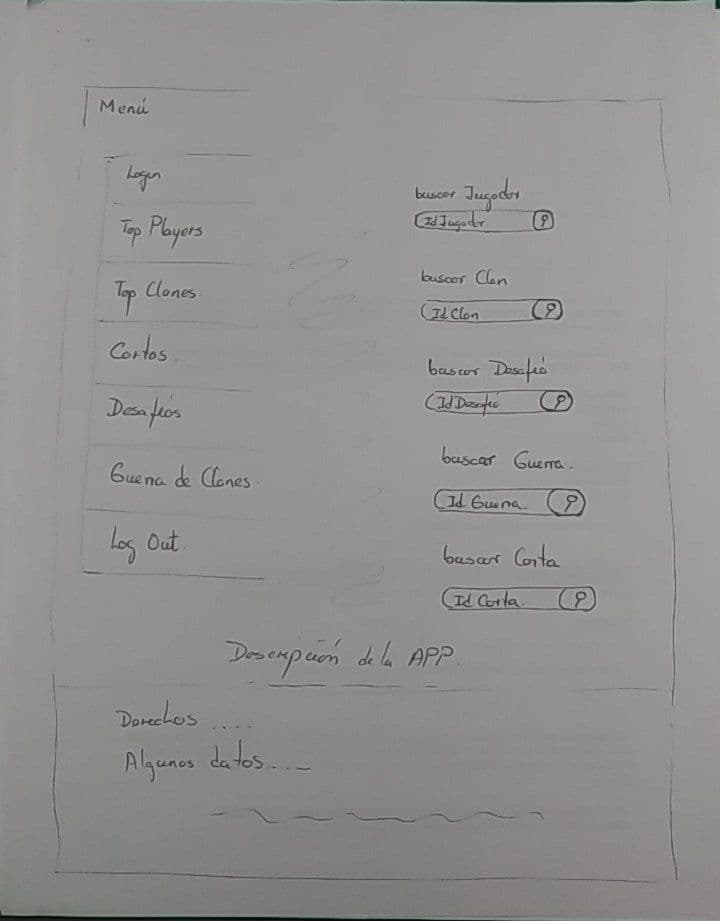 Menú
Login
Top Players
Top Clanes
Cartas
Desafíos
Guerra de Clanes
Log Out
buscar Jugador
Id Jugador
buscar Clan
Id Clan
buscar Desafió
Id Desafió
buscar Guerra.
Id Guerra.
buscar Carta
Id Carta.
Descripción de la APP.
Derechos ....
Algunos datos...